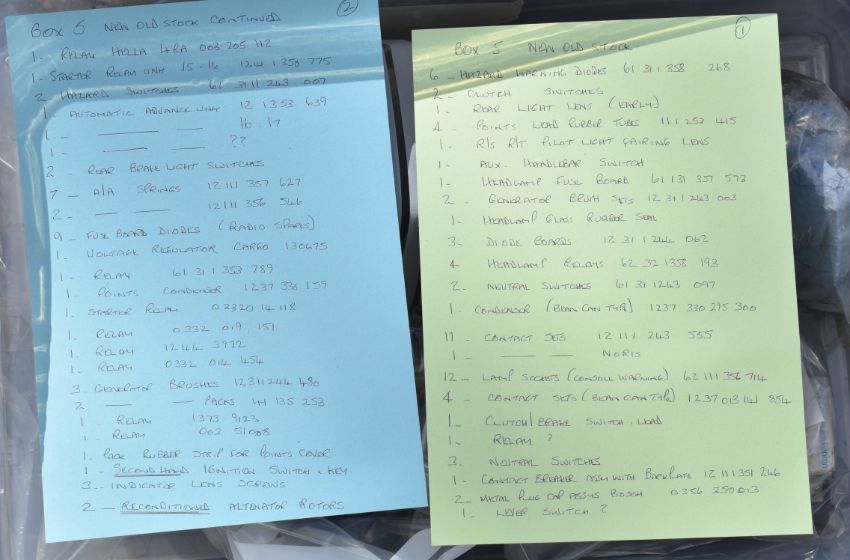 1
Box 5 NEW OLD STOCK
6 - HAZARD WARNING DIODES 61 31 1 358 268
2 - CLUTCH SWITCHES
1 - REAR LIGHT LENS (EARLY)
4 - POINTS LEAD RUBBER TUBES 111 252 415
1 - R/S R/T PILOT LIGHT FAIRING LENS
1 - AUX. HANDLEBAR SWITCH
1 - HEADLAMP FUSE BOARD 61 131 357 573
2 - GENERATOR BRUSH SETS 12 311 243 003
1 - HEADLAMP GLASS RUBBER SEAL
3 - DIODE BOARDS 12 31 1 244 062
4 HEADLAMP RELAYS 62 32 1358 193
2 - NEUTRAL SWITCHES 61 31 1243 097
1. CONDENSOR (BEAN CAN TYPE) 1237 330 295 300
11 - CONTACT SETS 12 111 243 555
1 - — — NORIS
12 - LAMP SOCKETS (CONSOLE WARNING) 62 111 356 714
4 - CONTACT SETS (BEAN CAN TYPE) 1 237 013 141 854
1 - CLUTCH/BRAKE SWITCH + LEAD
1 - RELAY ?
3. NEUTRAL SWITCHES
1 - CONTACT BREAKER ASSY WITH BACKPLATE 12 111 351 246
2 - METAL PLUG CAP ASSYS BOSCH 0 356 250 013
1 - LEVER SWITCH ?
2
Box 5 NEW OLD STOCK CONTINUED
1 - RELAY HELLA 4RA 003 205 112
1 - STARTER RELAY UNIT 15-16 1241 1 358 775
2 HAZARD SWITCHES 61 311 243 007
1 - AUTOMATIC ADVANCE UNIT 12 1 353 639
1 - — — 16.17
1 - — — ??
2 - REAR BRAKE LIGHT SWITCHES
7 - A/A SPRINGS 12 111 357 627
2 - — — 12111 356 546
9 - FUSE BOARD DIODES (RADIO SPARES)
1 - VOLTAGE REGULATOR CARGO 130675
1 - RELAY 61 31 1 353 789
1 - POINTS CONDENSOR 1237 330 159
1 - STARTER RELAY 0 3320 14 118
1. RELAY 0 332 019 151
1. RELAY 1244 3922
1 - RELAY 0332 014 454
3. GENERATOR BRUSHES 12311 244 480
2 — — PACKS 44 135 253
1. RELAY 1373 9123
1 - RELAY 003 51008
1. PACK RUBBER STRIP FOR POINTS COVER
1 - SECOND HAND IGNITION SWITCH + KEY
3 - INDICATOR LENS SCREWS
2 - RECONDITIONED ALTENATOR ROTORS